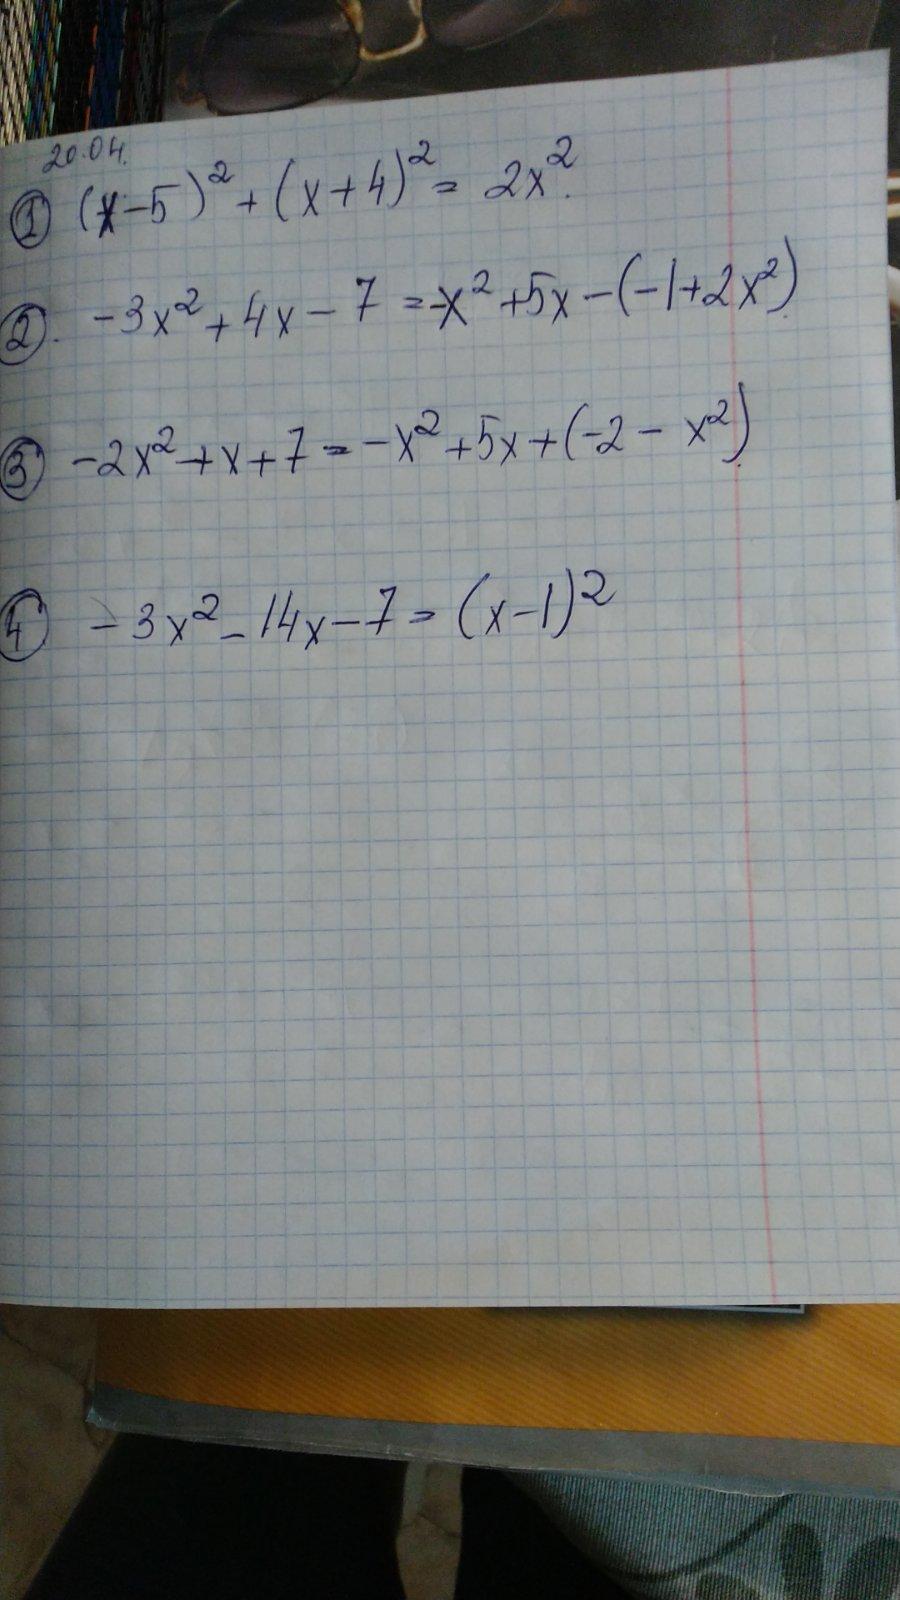 20.04.
① (x-5)² + (x+4)² = 2x².
②. -3x² + 4x - 7 = -x² + 5x - (-1+2x²).
③ -2x² + x + 7 = -x² + 5x + (-2 - x²).
④ -3x² - 14x - 7 = (x-1)²